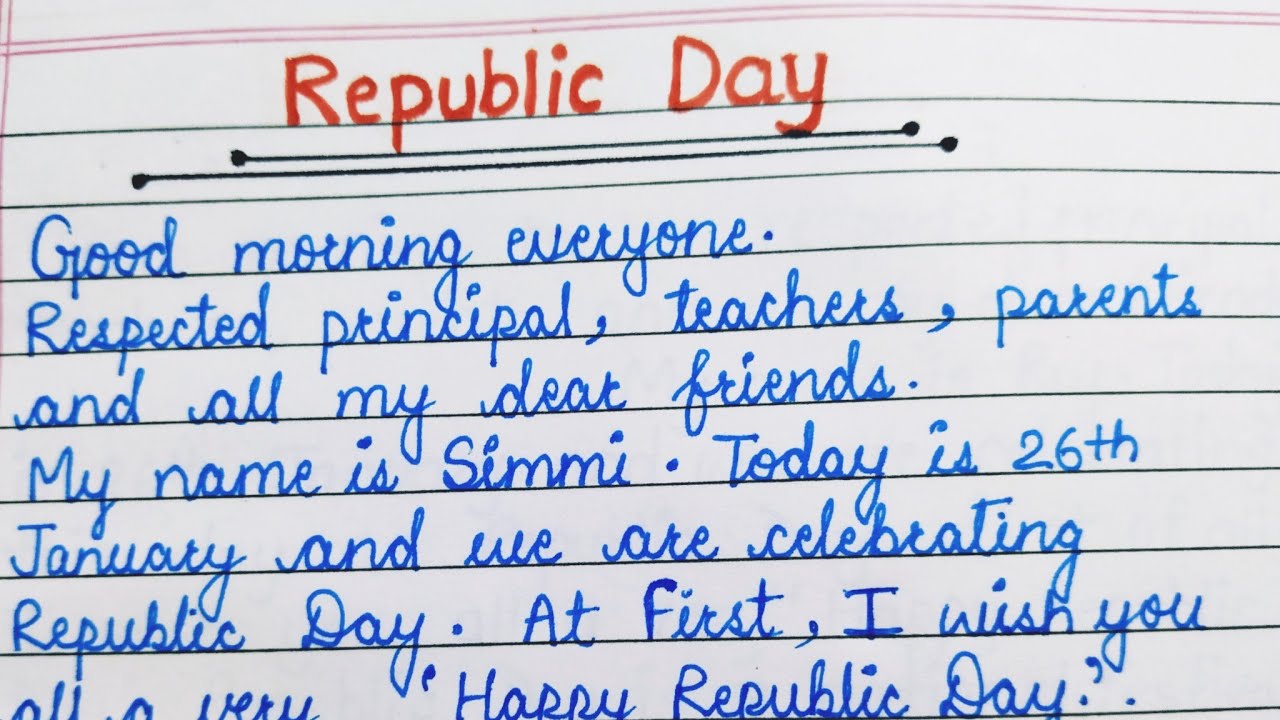 Republic Day
Good morning everyone.
Respected principal, teachers, parents
and all my dear friends.
My name is Simmi. Today is 26th
January and we are celebrating
Republic Day. At First, I wish you
all a very "Happy Republic Day.".